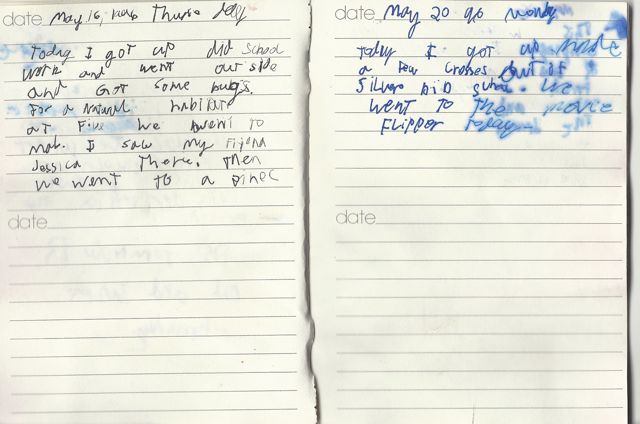 date May 16, Thurs day
Today I got up did school
work and went out side
and Got some bugs.
For a Natural habitat
at Five we went to
I saw my
Jessica There. Then
we went to a
date
date May 20 96
Today I got up made
a Few Crosses out of
Silver DID school. we
went to The movie
FLIPPER today
date